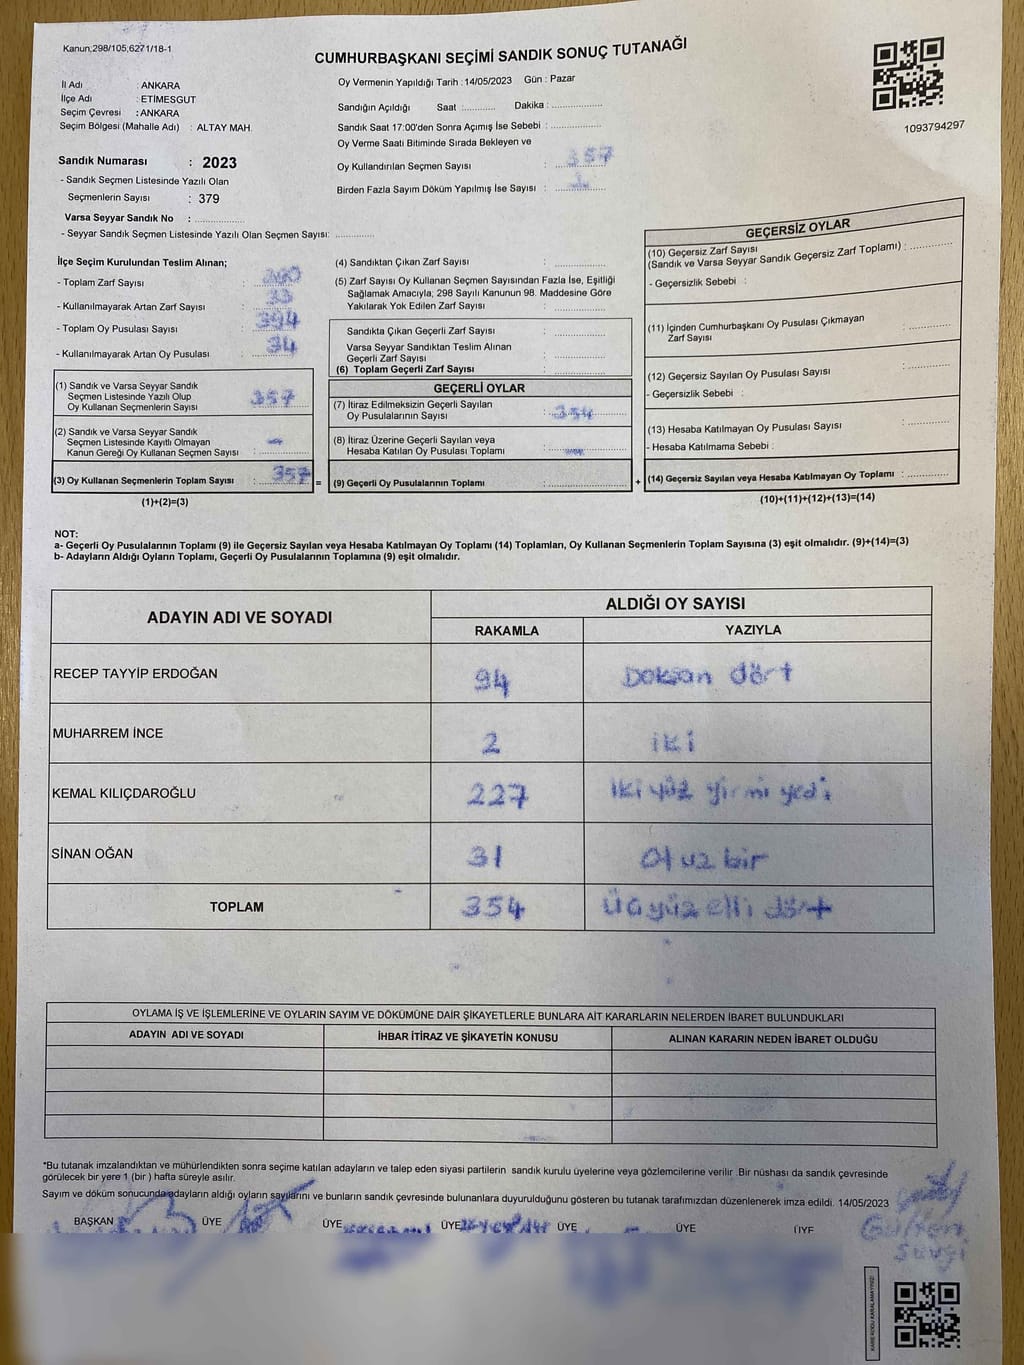 Kanun;298/105,6271/18-1
CUMHURBAŞKANI SEÇİMİ SANDIK SONUÇ TUTANAĞI
1093794297
İl Adı : ANKARA
İlçe Adı : ETİMESGUT
Seçim Çevresi : ANKARA
Seçim Bölgesi (Mahalle Adı) : ALTAY MAH.
Sandık Numarası : 2023
- Sandık Seçmen Listesinde Yazılı Olan
Seçmenlerin Sayısı : 379
Varsa Seyyar Sandık No : ..............
- Seyyar Sandık Seçmen Listesinde Yazılı Olan Seçmen Sayısı: ............
Oy Vermenin Yapıldığı Tarih : 14/05/2023 Gün : Pazar
Sandığın Açıldığı Saat :........... Dakika : .................
Sandık Saat 17:00'den Sonra Açımış İse Sebebi : .................
Oy Verme Saati Bitiminde Sırada Bekleyen ve
Oy Kullandırılan Seçmen Sayısı : 357
Birden Fazla Sayım Döküm Yapılmış İse Sayısı :
İlçe Seçim Kurulundan Teslim Alınan;
- Toplam Zarf Sayısı :
- Kullanılmayarak Artan Zarf Sayısı : 33
- Toplam Oy Pusulası Sayısı : 394
- Kullanılmayarak Artan Oy Pusulası : 34
(1) Sandık ve Varsa Seyyar Sandık
Seçmen Listesinde Yazılı Olup
Oy Kullanan Seçmenlerin Sayısı : 357
(2) Sandık ve Varsa Seyyar Sandık
Seçmen Listesinde Kayıtlı Olmayan
Kanun Gereği Oy Kullanan Seçmen Sayısı : -
(3) Oy Kullanan Seçmenlerin Toplam Sayısı : 357 =
(1)+(2)=(3)
(4) Sandıktan Çıkan Zarf Sayısı : ..............
(5) Zarf Sayısı Oy Kullanan Seçmen Sayısından Fazla İse, Eşitliği
Sağlamak Amacıyla; 298 Sayılı Kanunun 98. Maddesine Göre
Yakılarak Yok Edilen Zarf Sayısı : ..............
Sandıkta Çıkan Geçerli Zarf Sayısı : ..............
Varsa Seyyar Sandıktan Teslim Alınan
Geçerli Zarf Sayısı : ..............
(6) Toplam Geçerli Zarf Sayısı : ..............
GEÇERLİ OYLAR
(7) İtiraz Edilmeksizin Geçerli Sayılan
Oy Pusulalarının Sayısı : 354
(8) İtiraz Üzerine Geçerli Sayılan veya
Hesaba Katılan Oy Pusulası Toplamı : -
(9) Geçerli Oy Pusulalarının Toplamı : .............. +
GEÇERSİZ OYLAR
(10) Geçersiz Zarf Sayısı
(Sandık ve Varsa Seyyar Sandık Geçersiz Zarf Toplamı) : ............
- Geçersizlik Sebebi :
(11) İçinden Cumhurbaşkanı Oy Pusulası Çıkmayan
Zarf Sayısı : ............
(12) Geçersiz Sayılan Oy Pusulası Sayısı : ............
- Geçersizlik Sebebi :
(13) Hesaba Katılmayan Oy Pusulası Sayısı : ............
- Hesaba Katılmama Sebebi :
(14) Geçersiz Sayılan veya Hesaba Katılmayan Oy Toplamı : ............
(10)+(11)+(12)+(13)=(14)
NOT:
a- Geçerli Oy Pusulalarının Toplamı (9) ile Geçersiz Sayılan veya Hesaba Katılmayan Oy Toplamı (14) Toplamları, Oy Kullanan Seçmenlerin Toplam Sayısına (3) eşit olmalıdır. (9)+(14)=(3)
b- Adayların Aldığı Oyların Toplamı, Geçerli Oy Pusulalarının Toplamına (9) eşit olmalıdır.
ADAYIN ADI VE SOYADI ALDIĞI OY SAYISI
RAKAMLA YAZIYLA
RECEP TAYYİP ERDOĞAN 94 Doksan dört
MUHARREM İNCE 2 iki
KEMAL KILIÇDAROĞLU 227 iki yüz yirmi yedi
SİNAN OĞAN 31 Otuz bir
TOPLAM 354 Üçyüz elli dört
OYLAMA İŞ VE İŞLEMLERİNE VE OYLARIN SAYIM VE DÖKÜMÜNE DAİR ŞİKAYETLERLE BUNLARA AİT KARARLARIN NELERDEN İBARET BULUNDUKLARI
ADAYIN ADI VE SOYADI İHBAR İTİRAZ VE ŞİKAYETİN KONUSU ALINAN KARARIN NEDEN İBARET OLDUĞU
*Bu tutanak imzalandıktan ve mühürlendikten sonra seçime katılan adayların ve talep eden siyasi partilerin sandık kurulu üyelerine veya gözlemcilerine verilir .Bir nüshası da sandık çevresinde
görülecek bir yere 1 (bir ) hafta süreyle asılır.
Sayım ve döküm sonucunda adayların aldığı oyların sayılarını ve bunların sandık çevresinde bulunanlara duyurulduğunu gösteren bu tutanak tarafımızdan düzenlenerek imza edildi. 14/05/2023
BAŞKAN ÜYE ÜYE ÜYE ÜYE ÜYE ÜYE
KARE KODU KARALAMAYINIZ!